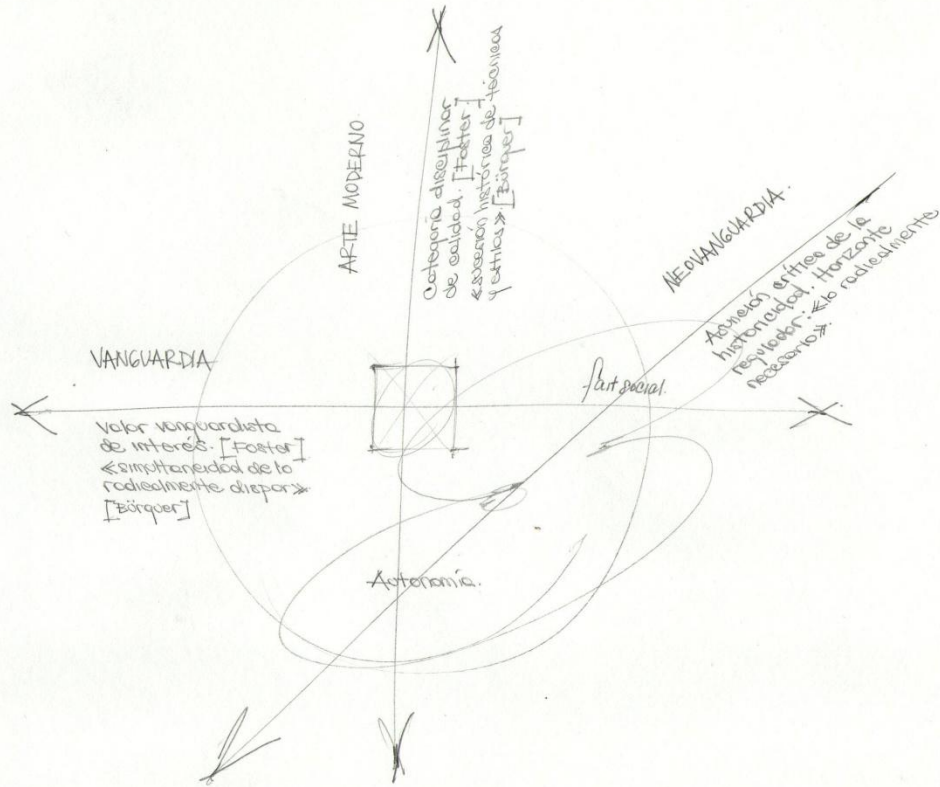 ARTE MODERNO.
Categoría disciplinar
de calidad. [Foster]
«sucesión histórica de técnicas
y estilos» [Bürguer]
NEOVANGUARDIA.
Asunción crítica de la
historicidad. Horizonte
regulador: «lo radicalmente
necesario».
VANGUARDIA
valor vanguardista
de interés. [Foster]
«simultaneidad de lo
radicalmente dispar»
[Bürguer]
fait social.
Autonomía.